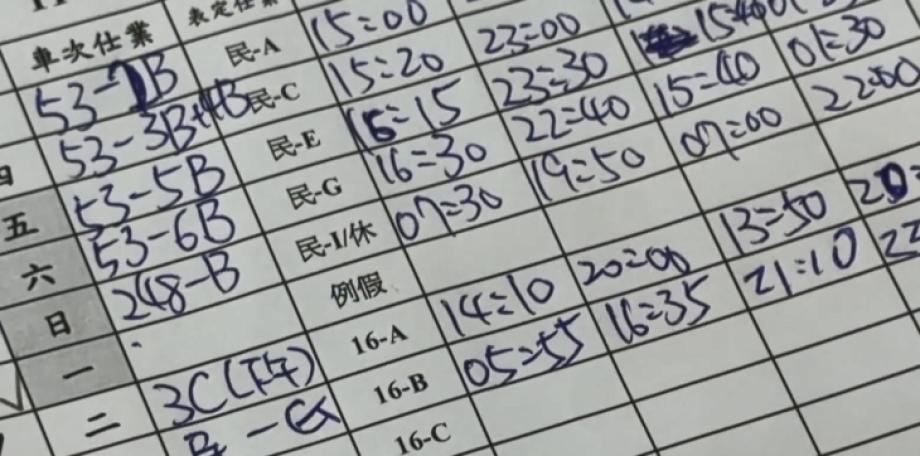 車次仕業 表定仕業
53-7B 民-A 15:00
四 53-3B+4B 民-C 15:20 23:00
五 53-5B 民-E 15:15 23:30 15:40
六 53-6B 民-G 16:30 22:40 15:40 01:30
日 248-B 民-I/休 07:30 19:50 07:00 22:00
一 例假
二 3C 16-A 14:10 20:00 13:50
16-B 05:55 16:35 21:10
16-C